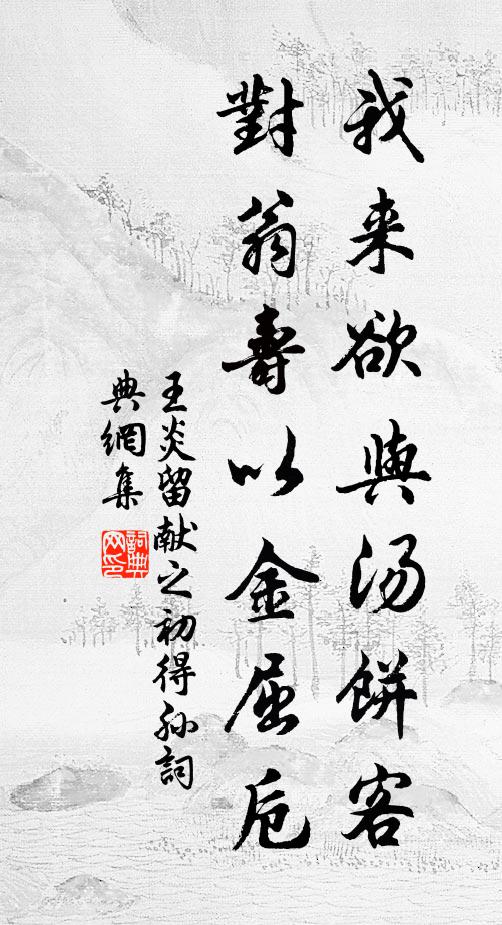 我来欲與汤餅客
對翁壽以金屈卮
王炎留献之初得孙詞
典網集
詞典
网印